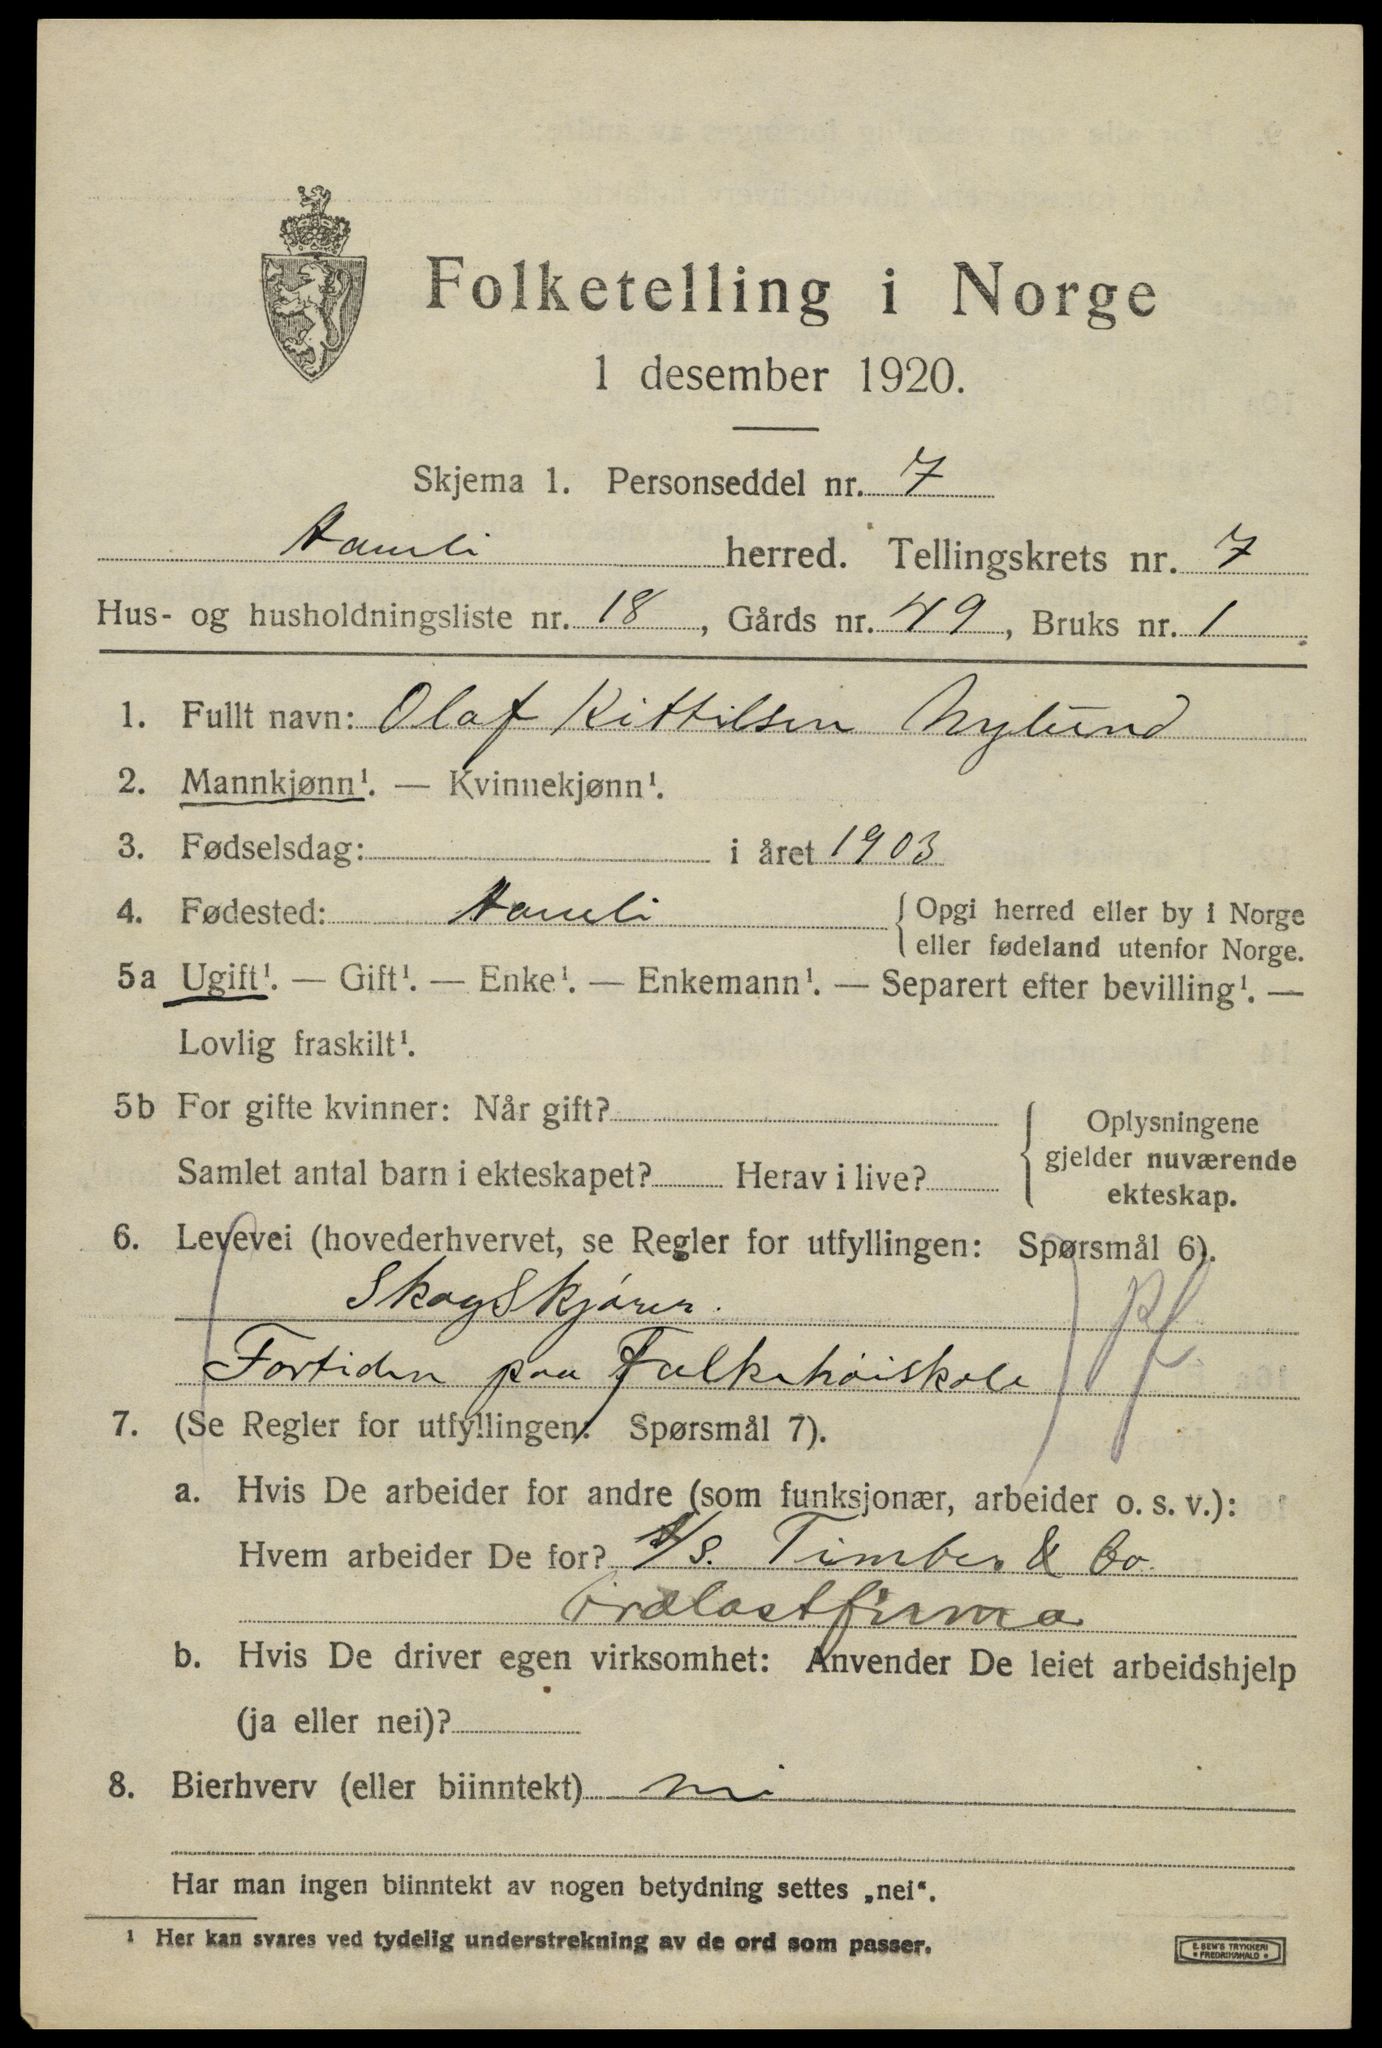 Folketelling i Norge
1 desember 1920.
Skjema 1. Personseddel nr. 7
Aamli herred. Tellingskrets nr. 7
Hus- og husholdningsliste nr. 18, Gårds nr. 49, Bruks nr. 1
1. Fullt navn: Olaf Kittilsen Nylund
2. Mannkjønn¹. — Kvinnekjønn¹.
3. Fødselsdag: i året 1903
4. Fødested: Aamli { Opgi herred eller by i Norge
eller fødeland utenfor Norge.
5a Ugift¹. — Gift¹. — Enke¹. — Enkemann¹. — Separert efter bevilling¹. —
Lovlig fraskilt¹.
5b For gifte kvinner: Når gift?
Samlet antal barn i ekteskapet? Herav i live?
{ Oplysningene
gjelder nuværende
ekteskap.
6. Levevei (hovederhvervet, se Regler for utfyllingen: Spørsmål 6).
Skogskjører.
Fortiden paa Folkehøiskole
7. (Se Regler for utfyllingen: Spørsmål 7).
a. Hvis De arbeider for andre (som funksjonær, arbeider o. s. v.):
Hvem arbeider De for? A/S. Timber & Co.
Trælastfirma
b. Hvis De driver egen virksomhet: Anvender De leiet arbeidshjelp
(ja eller nei)?
8. Bierhverv (eller biinntekt) nei
Har man ingen biinntekt av nogen betydning settes „nei“.
¹ Her kan svares ved tydelig understrekning av de ord som passer.
E. SEM'S TRYKKERI
• FREDRIKSHALD •